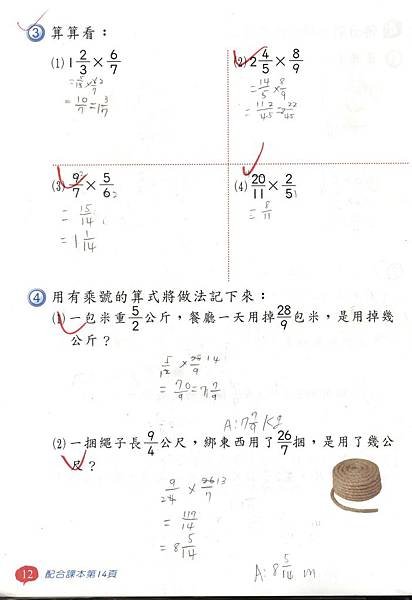 3 算算看：
(1) 1 2/3 × 6/7
= 5/3 × 6 2/7
= 10/7 = 1 3/7
(2) 2 4/5 × 8/9
= 14/5 × 8/9
= 112/45 = 2 22/45
(3) 9/7 × 5/6 2
= 15/14
= 1 1/14
(4) 20/11 × 2/5 1
= 8/11
4 用有乘號的算式將做法記下來：
(1) 一包米重 5/2 公斤，餐廳一天用掉 28/9 包米，是用掉幾
公斤？
5/2 × 28 14/9
= 70/9 = 7 7/9
A: 7 7/9 Kg
(2) 一捆繩子長 9/4 公尺，綁東西用了 26/7 捆，是用了幾公
尺？
9/2 4 × 26 13/7
= 117/14
= 8 5/14
A: 8 5/14 m
12 配合課本第14頁